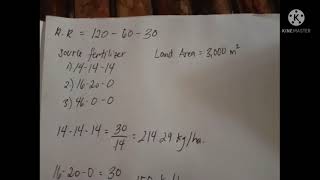 R.R = 120-60-30
KINEMASTER
Source fertilizer Land Area = 3,000 m²
1) 14-14-14
2) 16-20-0
3) 46-0-0
14-14-14 = 30/14 = 214.29 kg/ha.
16-20-0 = 30